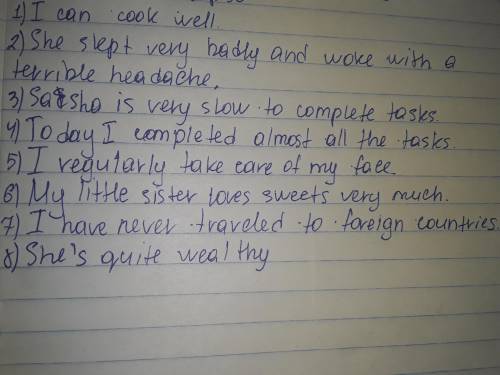 1) I can cook well.
2) She slept very badly and woke with a
terrible headache.
3) Sasha is very slow to complete tasks.
4) Today I completed almost all the tasks.
5) I regularly take care of my face.
6) My little sister loves sweets very much.
7) I have never traveled to foreign countries.
8) She's quite wealthy